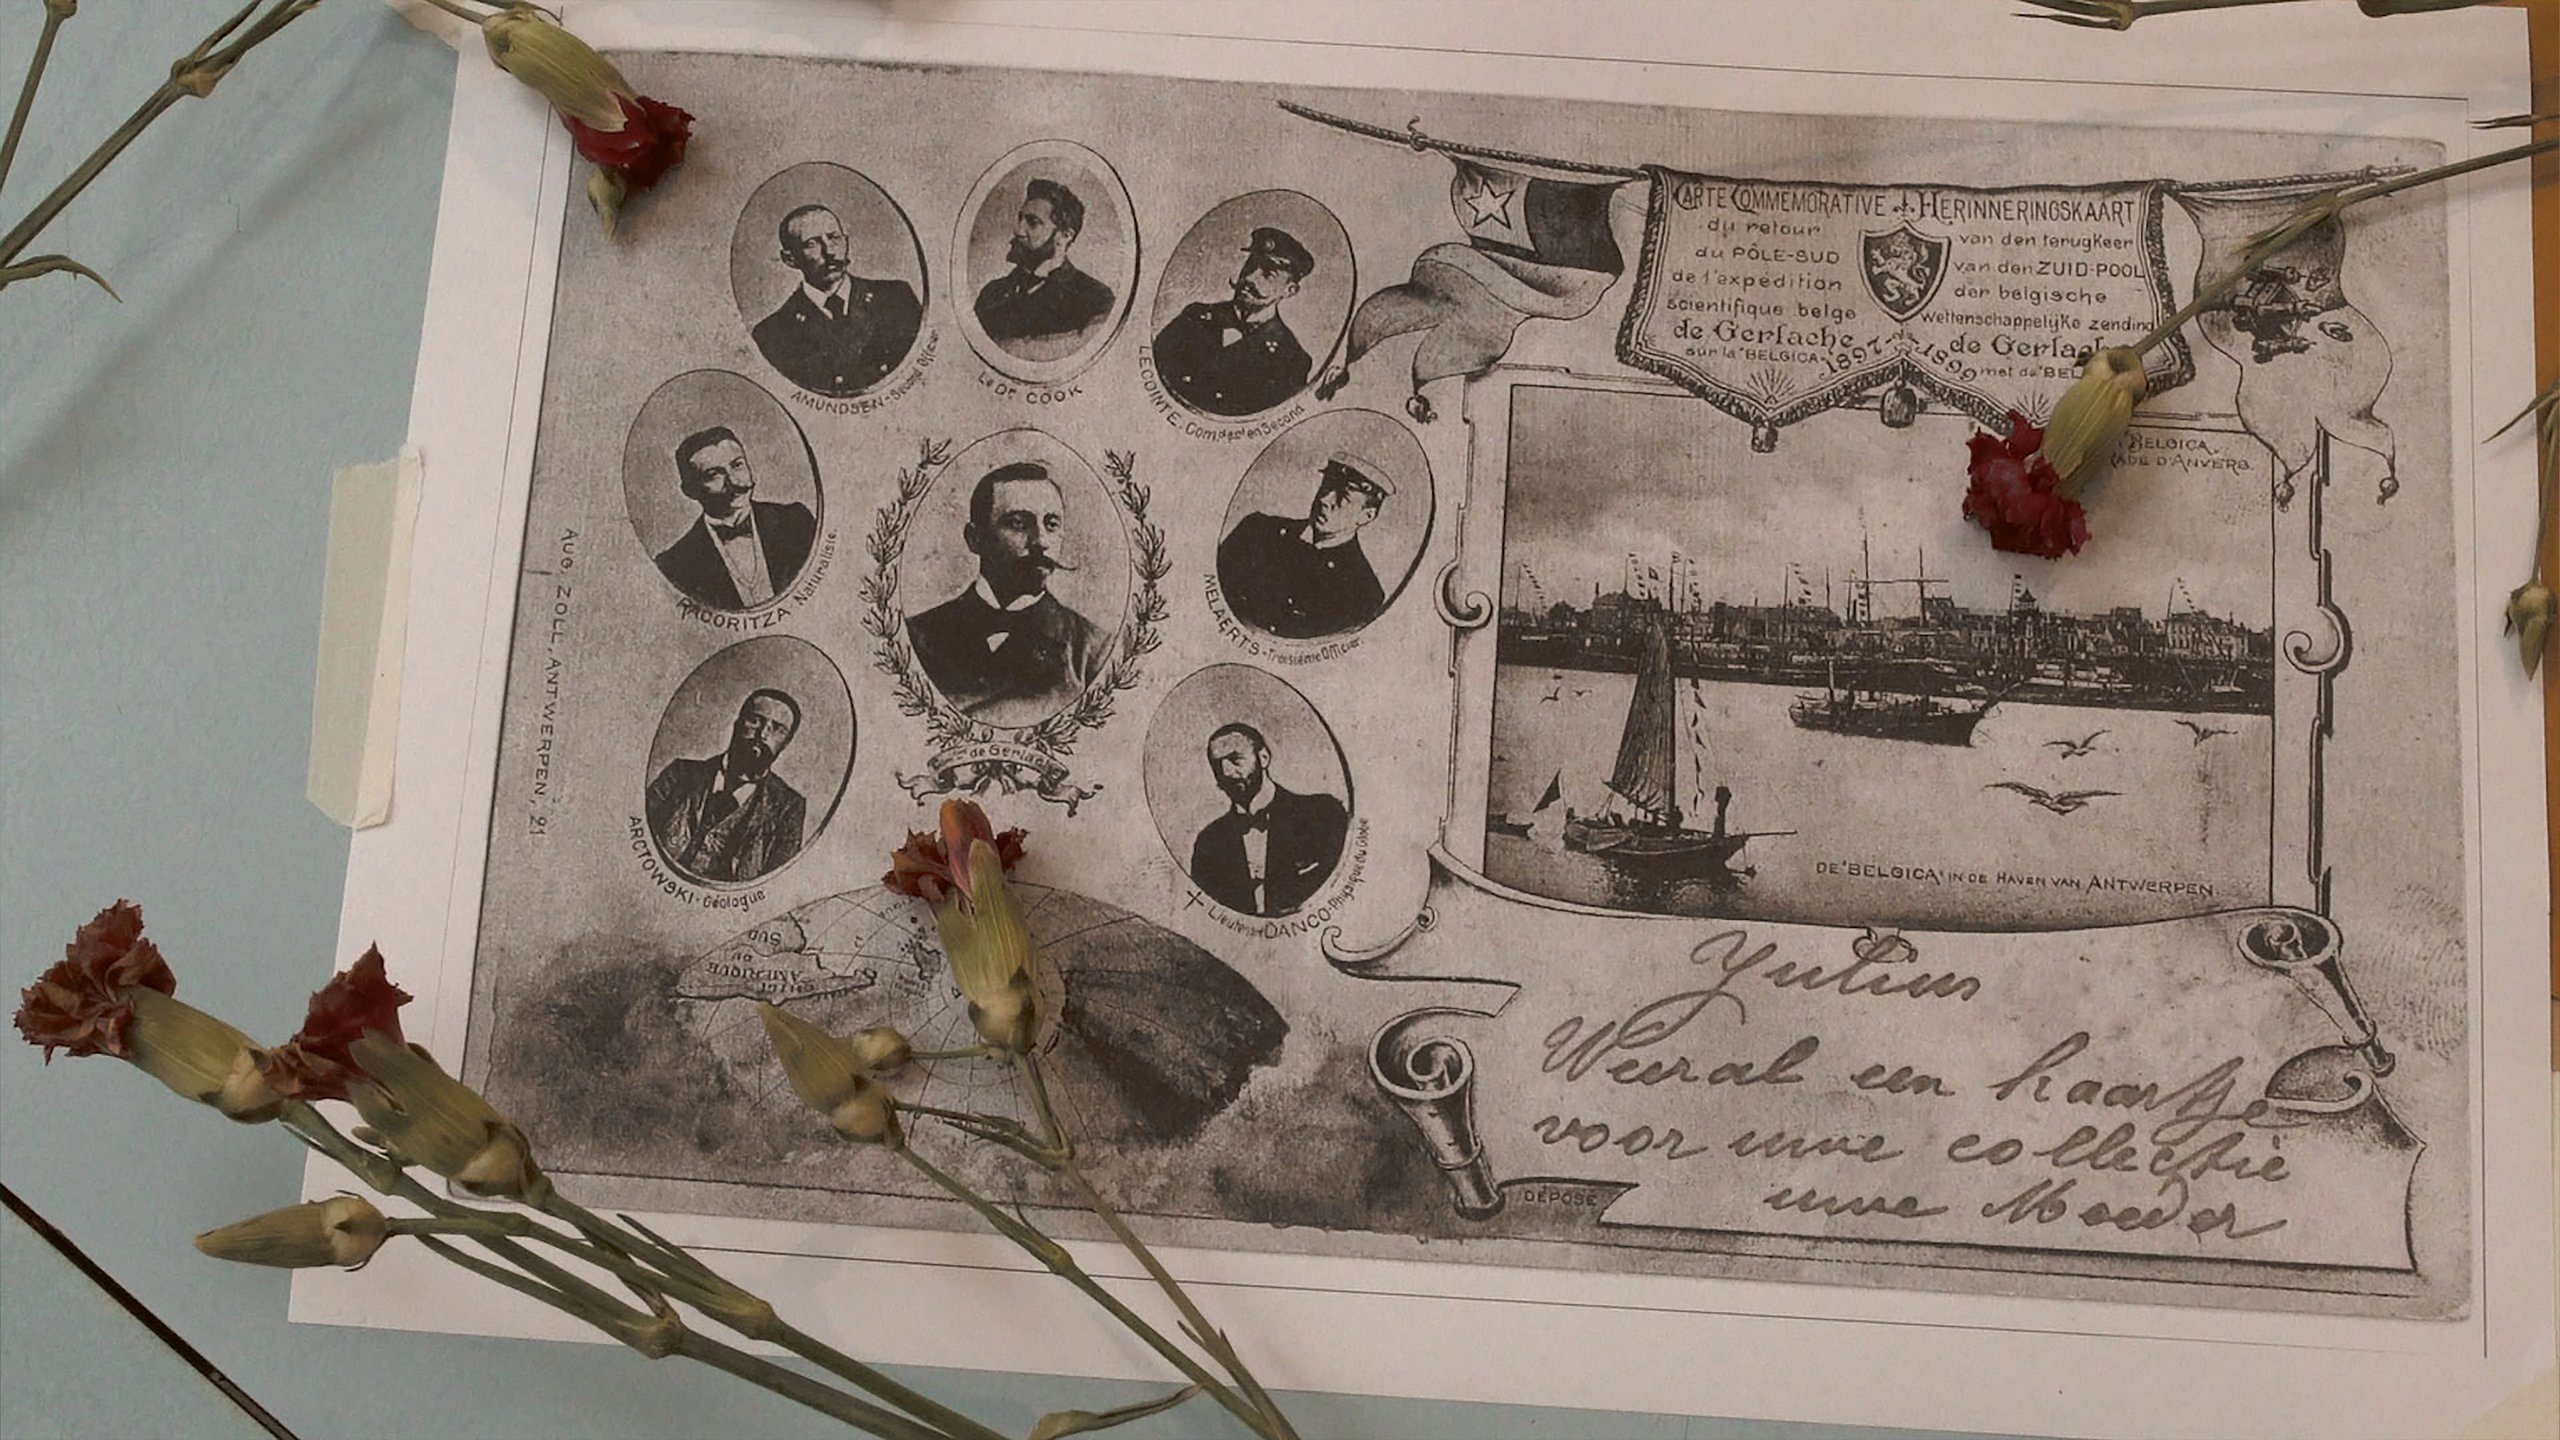 CARTE COMMEMORATIVE
du retour
du PÔLE-SUD
de l'expédition
scientifique belge
de Gerlache
sur la "BELGICA"
HERINNERINGSKAART
van den terugkeer
van den ZUID-POOL
der belgische
wettenschappelijke zending
de Gerlach
met de "BEL
1897-1899
AMUNDSEN-Second Officier
Le Dr COOK
LECOINTE, Comdant en Second
RACORITZA Naturalisie.
de Gerlache
MELAERTS-Troisième Officier
ARCTOWSKI-Géologue
Lieutenant DANCO-Physique du Globe
AUG. ZOLL, ANTWERPEN, 21
BELGICA
ADE D'ANVERS.
DE 'BELGICA' IN DE HAVEN VAN ANTWERPEN.
AMÉRIQUE
DU
SUD
CHILI
Yulius
Weeral een kaartje
voor uwe collectie
uwe Moeder
DÉPOSÉ